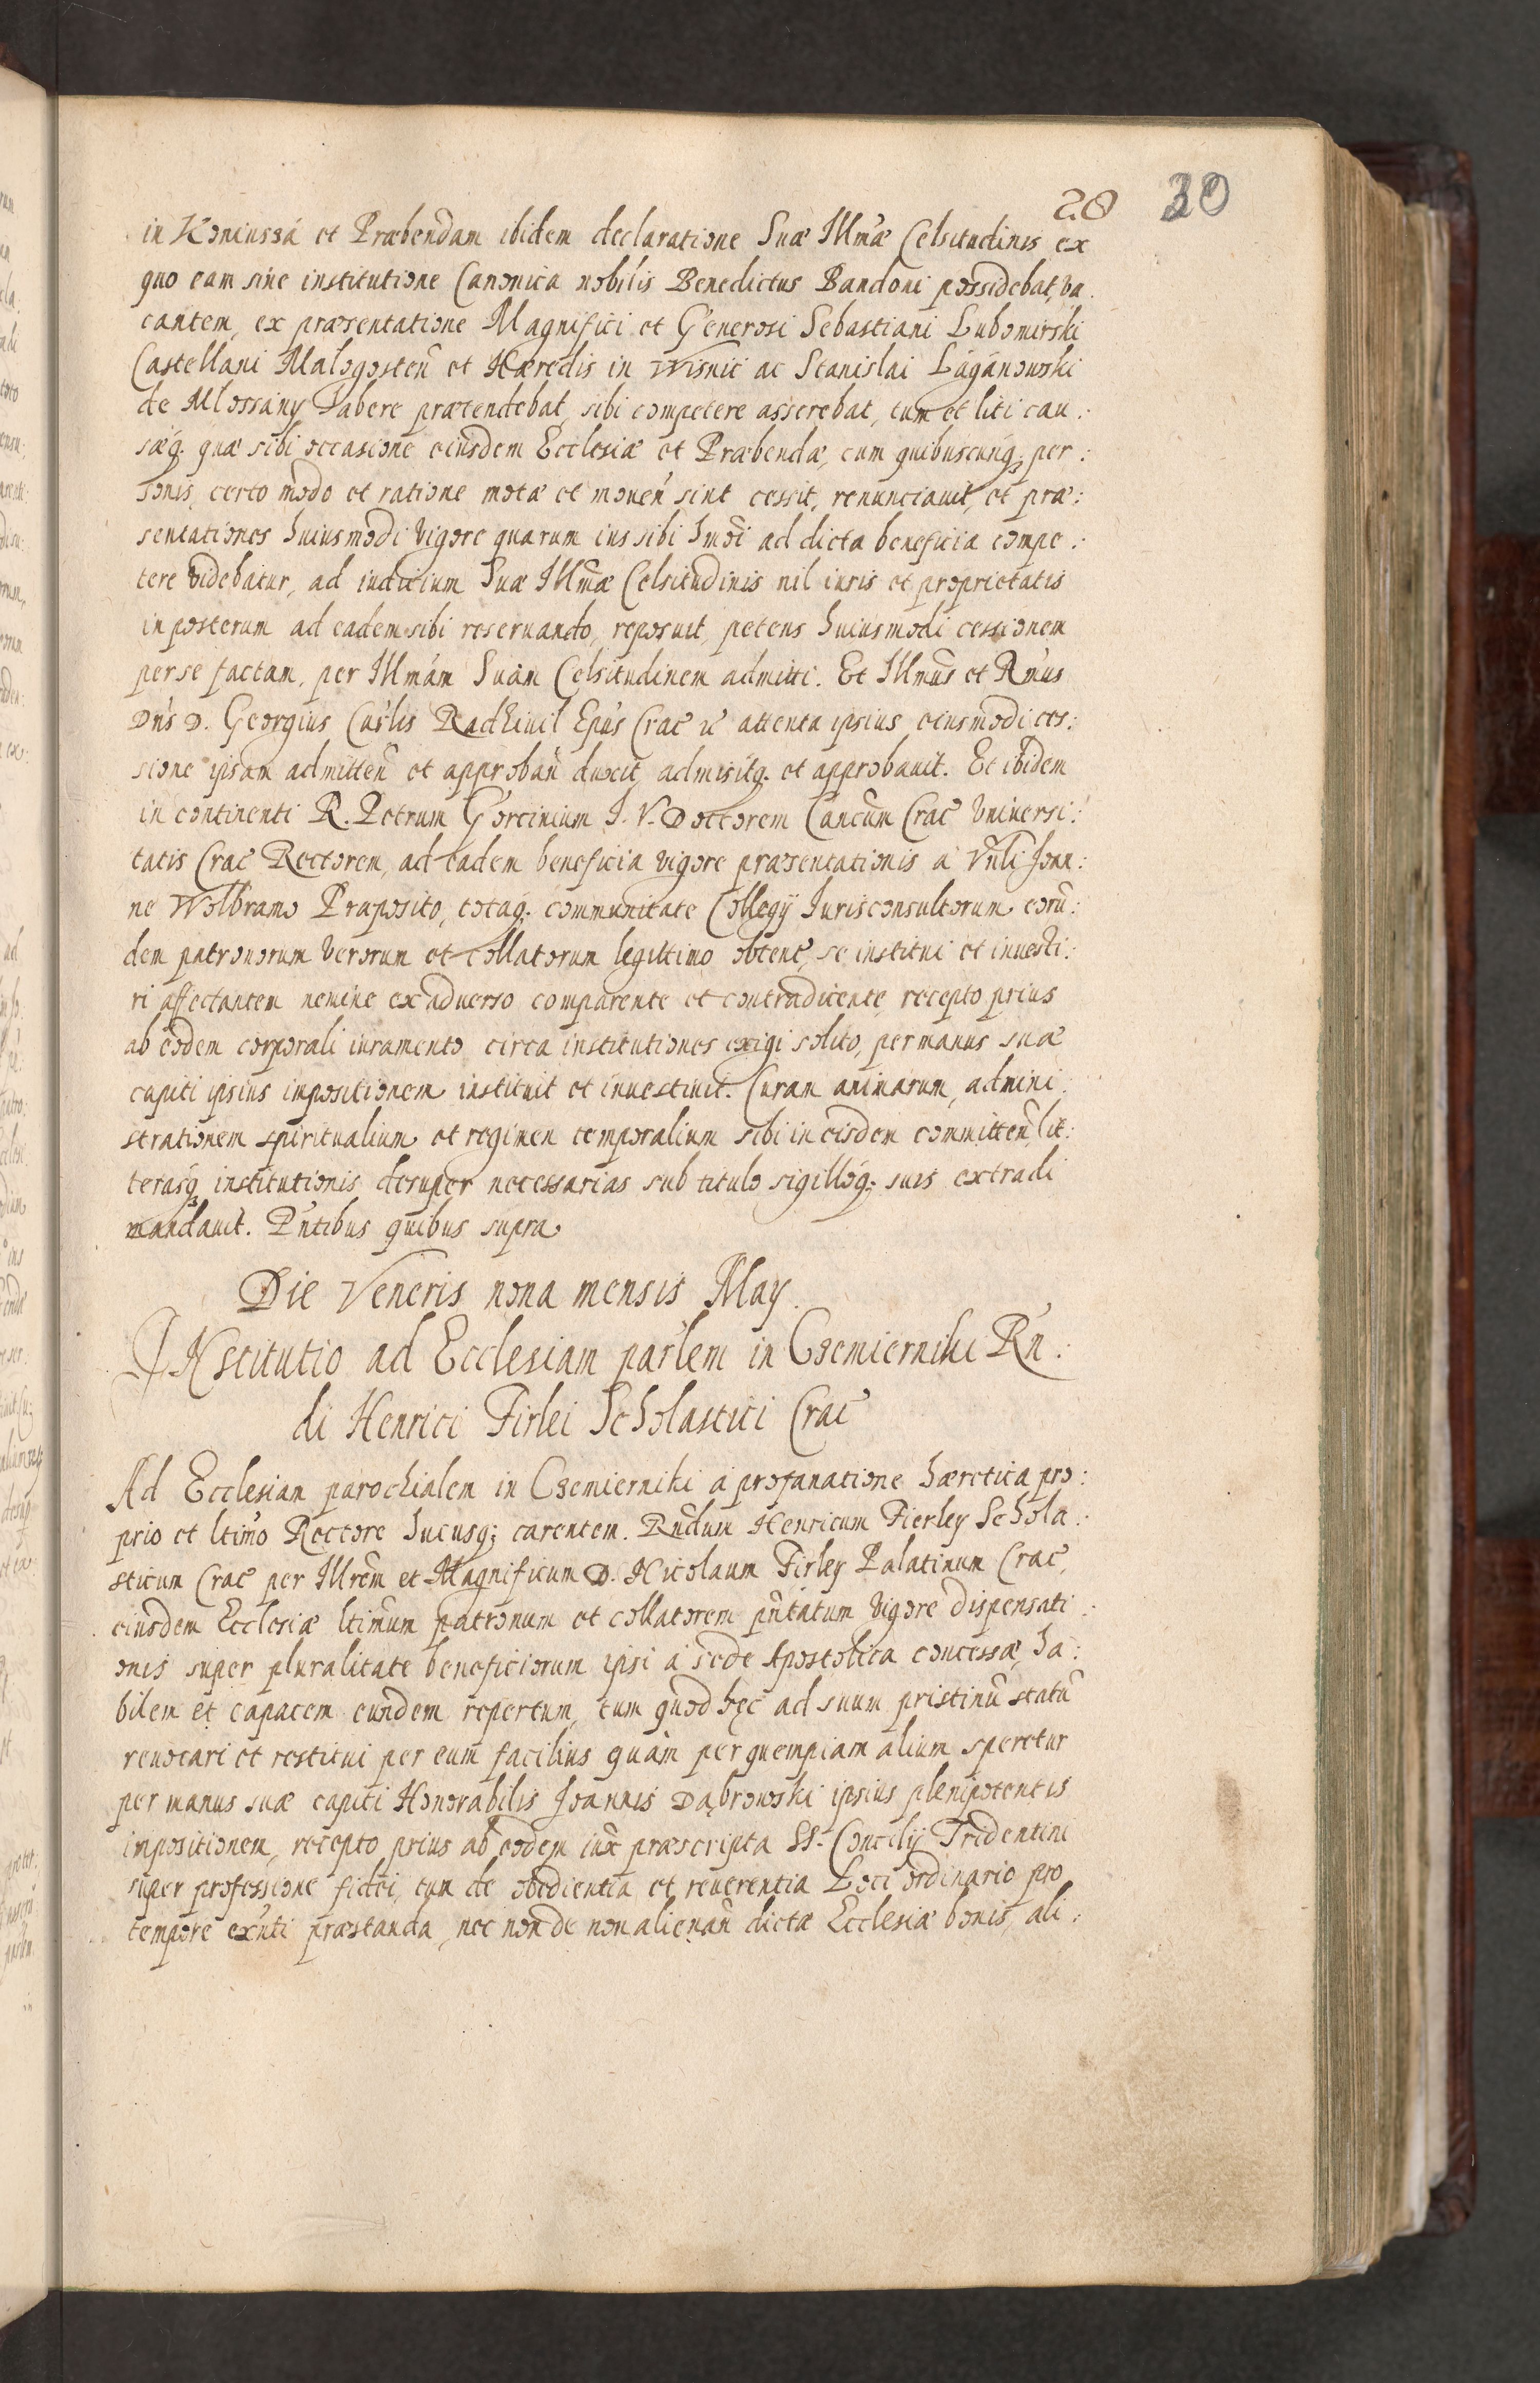 28 30
in Koniussá et Præbendam ibidem declaratione Suæ Illmæ Celsitudinis ex
quo eam sine institutione Canonica nobilis Benedictus Bandoni possidebat, va
cantem, ex præsentatione Magnifici et Generosi Sebastiani Lubomirski
Castellani Malogosteñ et Hæredis in Wisnic ac Stanislai Lágánowski
de Mlossany habere prætendebat, sibi competere asserebat, tum et liti cau:
sæq; quæ sibi occasione eiusdem Ecclesiæ et Præbendæ, cum quibuscunq; per:
sonis, certo modo et ratione motæ et moueñ sint cessit, renunciauit, et præ:
sentationes huiusmodi vigore quarum ius sibi hmõi ad dicta beneficia compe:
tere videbatur, ad iudicium Suæ Illmæ Celsitudinis nil iuris et proprietatis
in posterum ad eadem sibi reseruando, reposuit, petens huiusmodi cessionem
per se factam, per Illmam Suam Celsitudinem admitti. Et Illmus et Rmus
Dns D. Georgius Carlis Radziuil Epus Crac &c attenta ipsius eiusmodi ces:
sione ipsam admitteñ et approbañ duxit, admisitq; et approbauit. Et ibidem
in continenti R. Petrum Gorcinium I. V. Doctorem Cancum Crac Vniuersi:
tatis Crac Rectorem, ad eadem beneficia vigore præsentationis a Vnli Joan:
ne Wolbramo Præposito, totaq; communitate Collegij Iurisconsultorum eorũ:
dem patronorum verorum et collatorum legittimo obtent, se institui et inuesti:
ri affectantem nemine ex aduerso comparente et contradicente, recepto prius
ab eodem corporali iuramento circa institutiones exigi solito, per manus suæ
capiti ipsius impositionem instituit et inuestiuit. Curam animarum, admini:
strationem spiritualium et regimen temporalium sibi in eisdem committeñ, lit:
terasq; institutionis desuper necessarias sub titulo sigilloq; suis extradi
mandauit. Pntibus quibus supra
Die Veneris nona mensis May.
INstitutio ad Ecclesiam parlem in Czemierniki Rñ:
di Henrici Firlei Scholastici Crac
Ad Ecclesiam parochialem in Czemierniki á profanatione hæretica pro:
prio et ltimo Rectore hucusq; carentem. Rndum Henricum Fierley Schola:
sticum Crac per Illrem et Magnificum D. Nicolaum Firley Palatinum Crac,
eiusdem Ecclesiæ ltimum patronum et collatorem pntatum vigore dispensati:
onis super pluralitate beneficiorum ipsi á sede Apostolica concessæ, ha:
bilem et capacem eundem repertum, tum quod hęc ad suum pristinũ statũ
reuocari et restitui per eum facilius quàm per quempiam alium speretur
per manus suæ capiti Honorabilis Joannis Dąbrowski ipsius plenipotentis
impositionem, recepto prius ab eodem iux præscripta SS. Concilij Tridentini
super professione fidei, tum de obedientia et reuerentia Loci ordinario pro
tempore exnti præstanda, nec non de non alienañ dictæ Ecclesiæ bonis, ali: